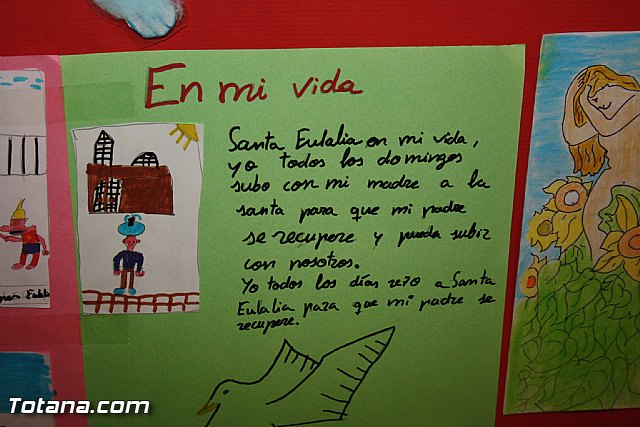 En mi vida
Santa Eulalia en mi vida,
yo todos los domingos
subo con mi madre a la
santa para que mi padre
se recupere y pueda subir
con nosotros.
Yo todos los días rezo a Santa
Eulalia para que mi padre se
recupere.
Eulalia
Totana.com